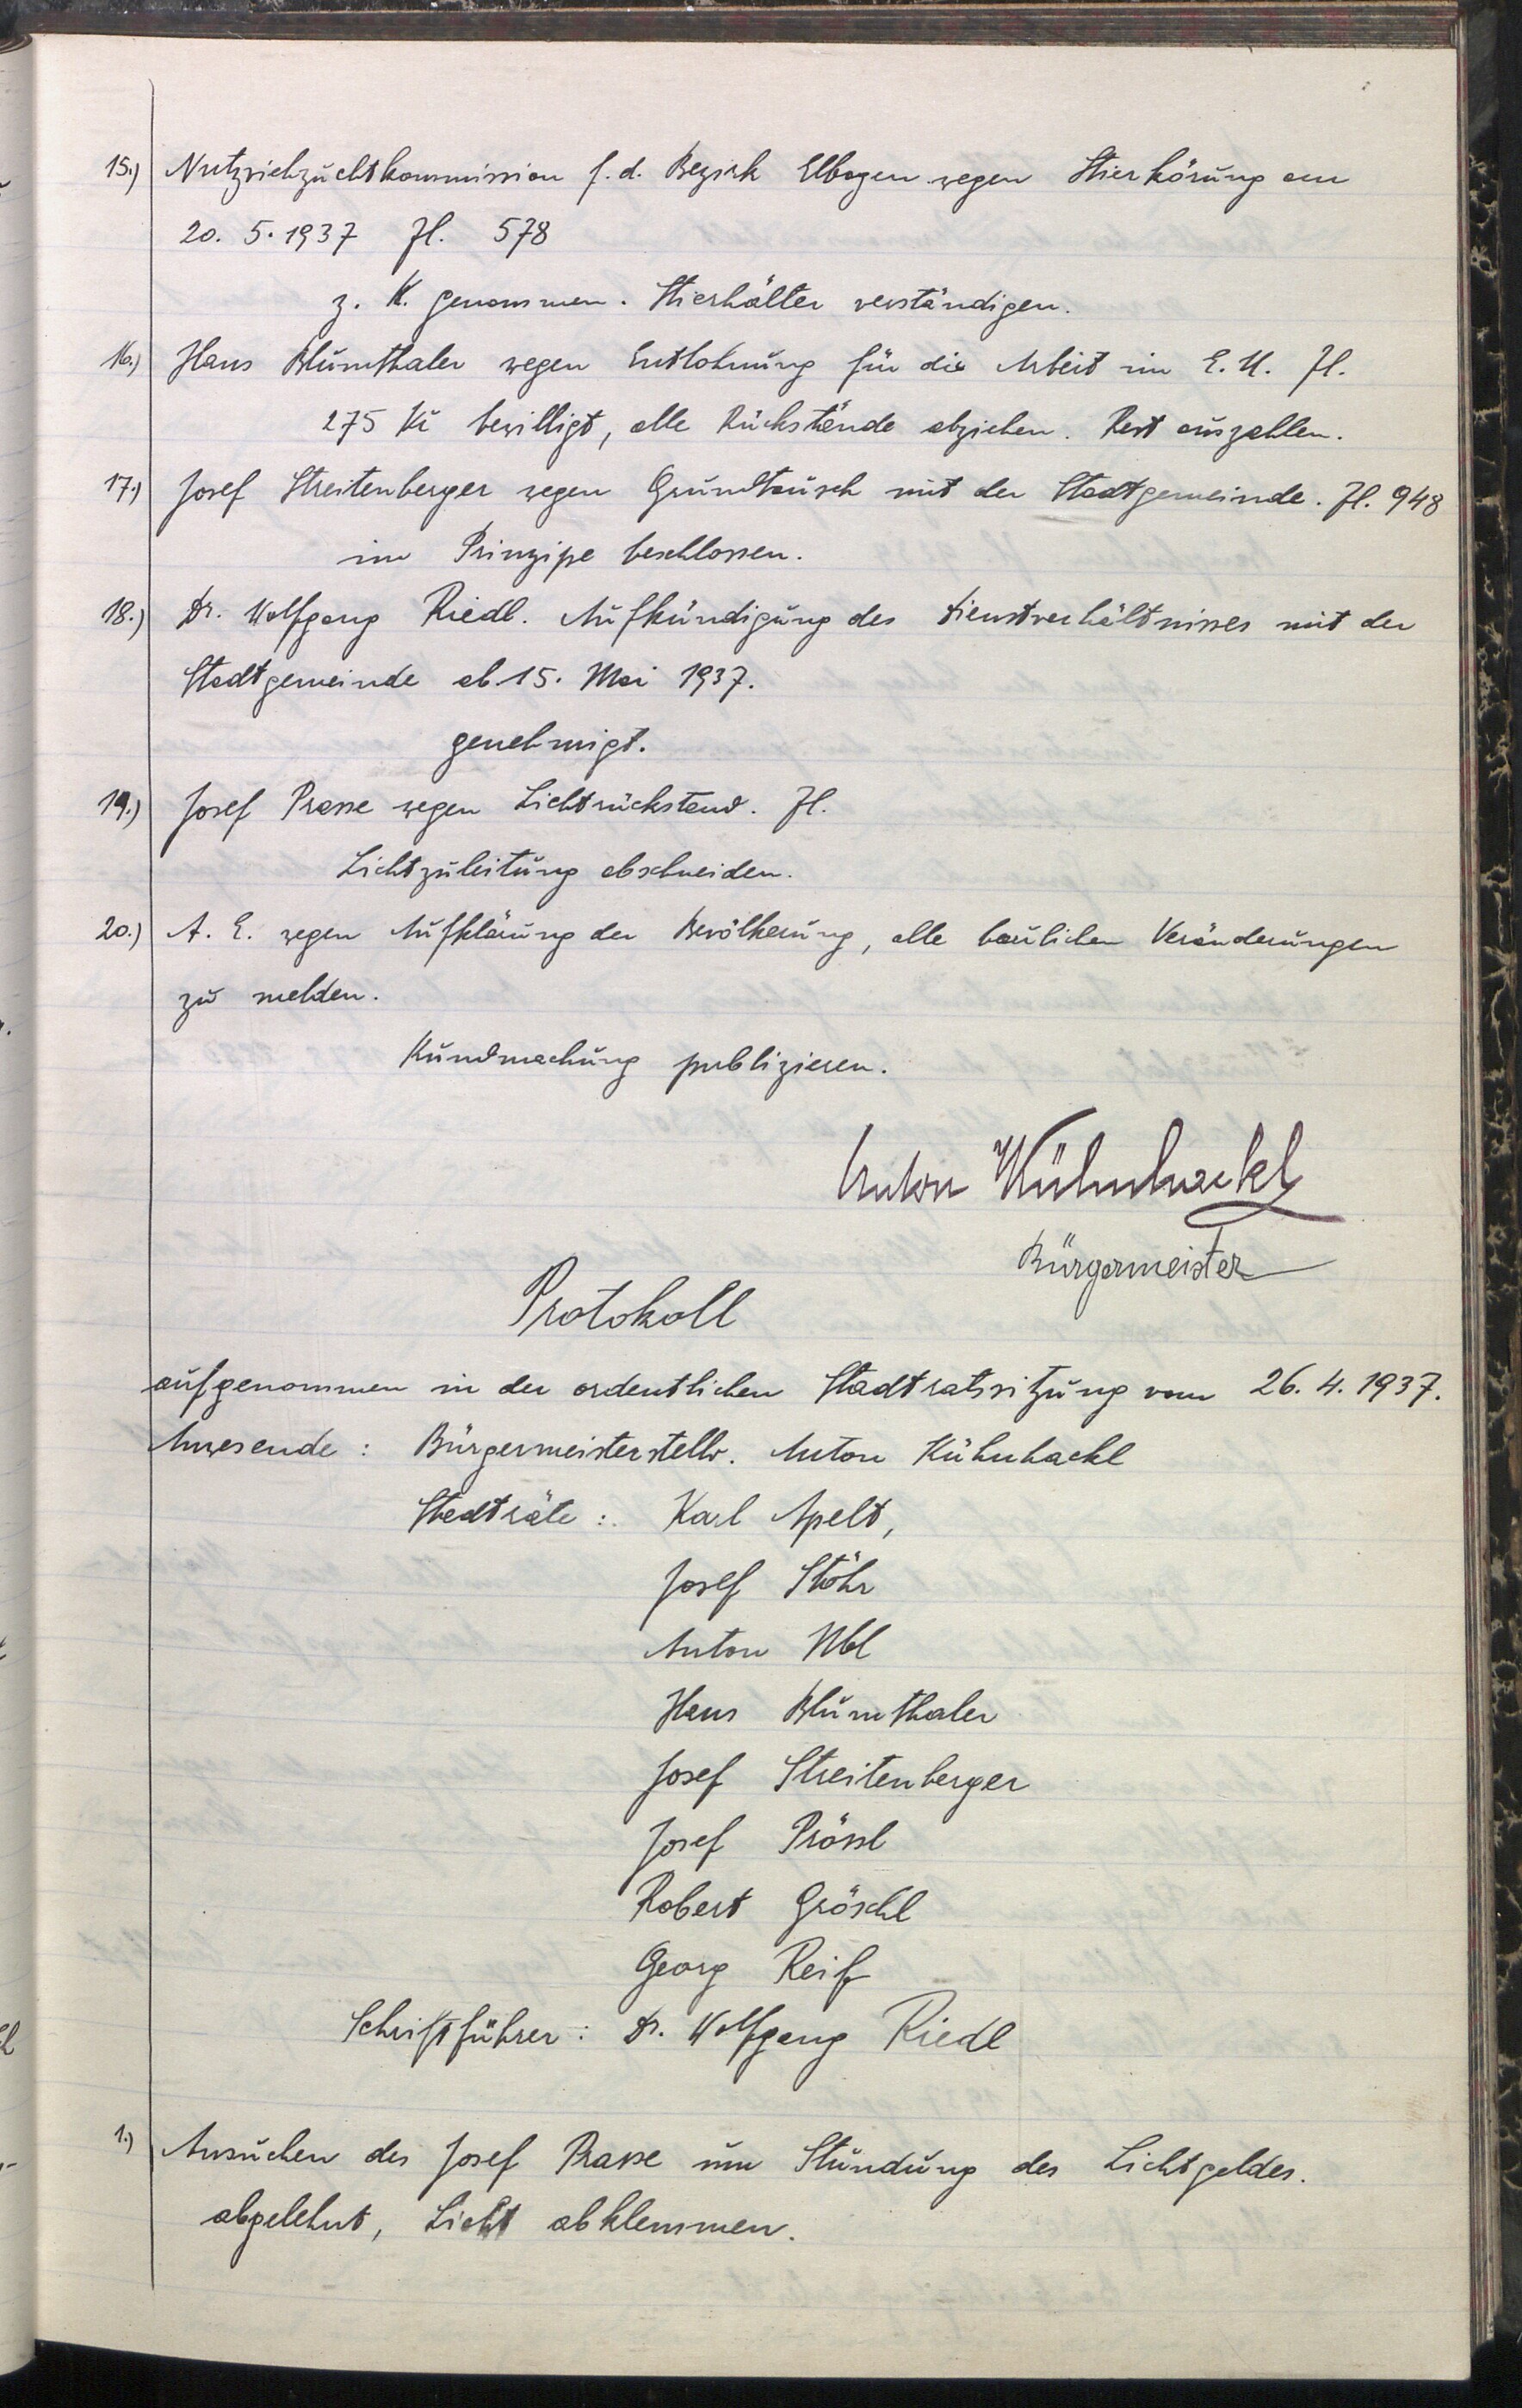 15.) Nutzviehzuchtkommission f. d. Bezirk Elbogen wegen Stierkörung am
20. 5. 1937 Zl. 578
z. K. genommen. Stierhälter verständigen.
16.) Hans Blumthaler wegen Entlohnung für die Arbeit im E. U. Zl.
275 Kč bewilligt, alle Rückstände abziehen. Rest auszahlen.
17.) Josef Streitenberger wegen Grundtausch mit der Stadtgemeinde. Zl. 948
im Prinzipe beschlossen.
18.) Dr. Wolfgang Riedl. Aufkündigung des Dienstverhältnisses mit der
Stadtgemeinde ab 15. Mai 1937.
genehmigt.
19.) Josef Prasse wegen Lichtrückstand. Zl.
Lichtzuleitung abschneiden.
20.) A. E. wegen Aufklärung der Bevölkerung, alle baulichen Veränderungen
zu melden.
Kundmachung publizieren.
Anton Kühnhackl
Bürgermeister
Protokoll
aufgenommen in der ordentlichen Stadtratssitzung vom 26. 4. 1937.
Anwesende: Bürgermeisterstellv. Anton Kühnhackl
Stadträte: Karl Apelt,
Josef Stöhr
Anton Ubl
Hans Blumthaler
Josef Streitenberger
Josef Prössl
Robert Gröschl
Georg Reif
Schriftführer: Dr. Wolfgang Riedl
1.) Ansuchen des Josef Prasse um Stundung des Lichtgeldes.
abgelehnt, Licht abklemmen.